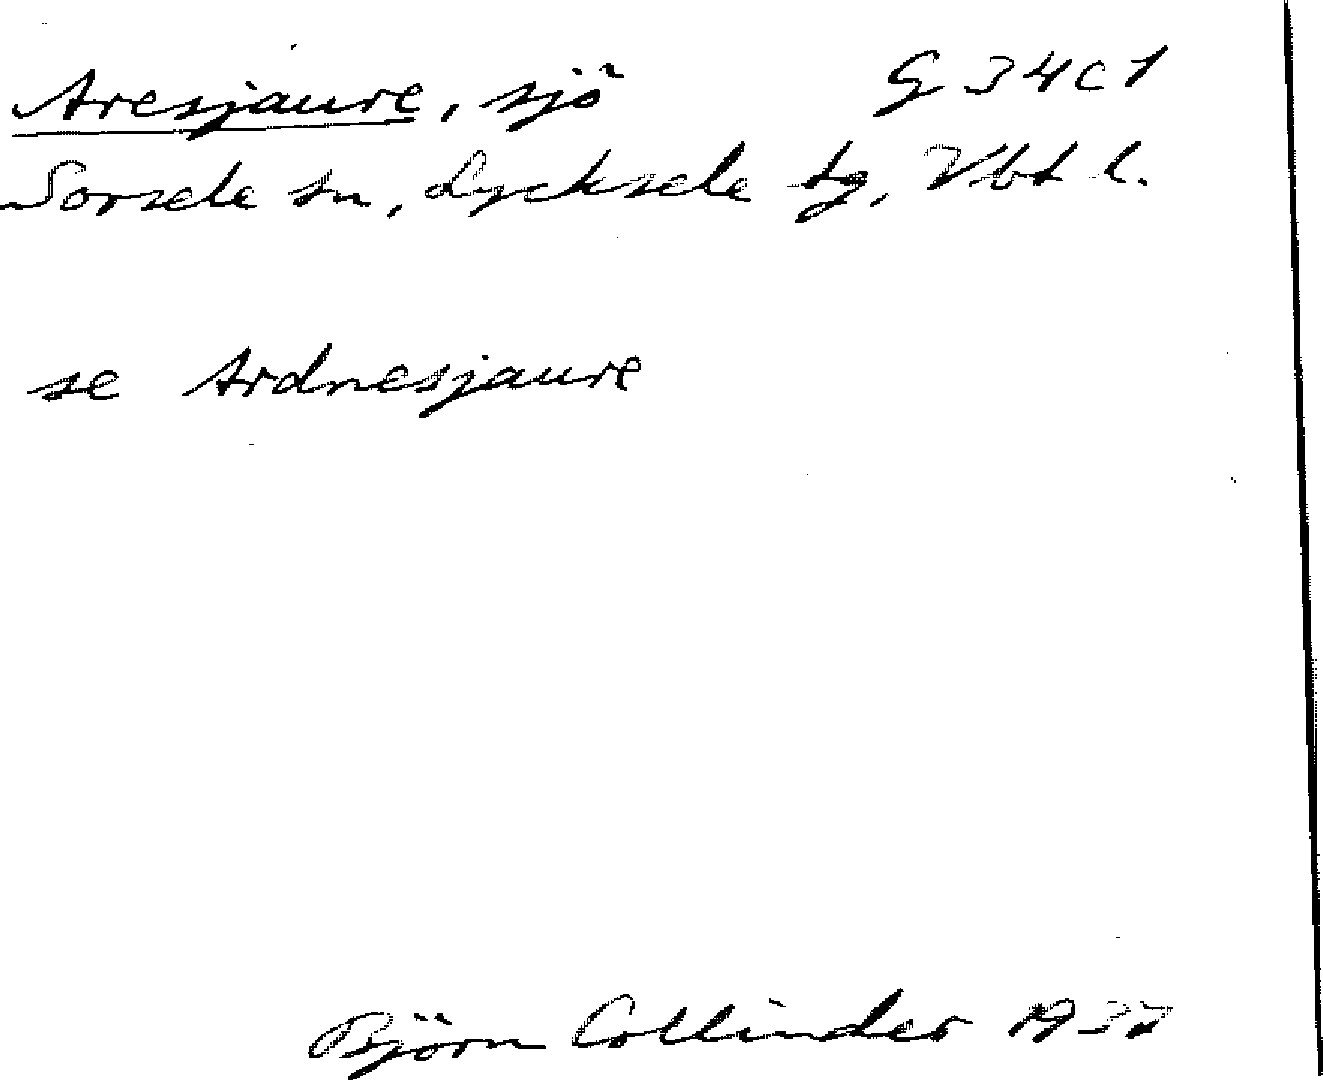 Aresjaure, sjö G 34 c 1
Sorsele sn, Lycksele tg, Vbt l.
se Ardnesjaure
Björn Collinder 1937